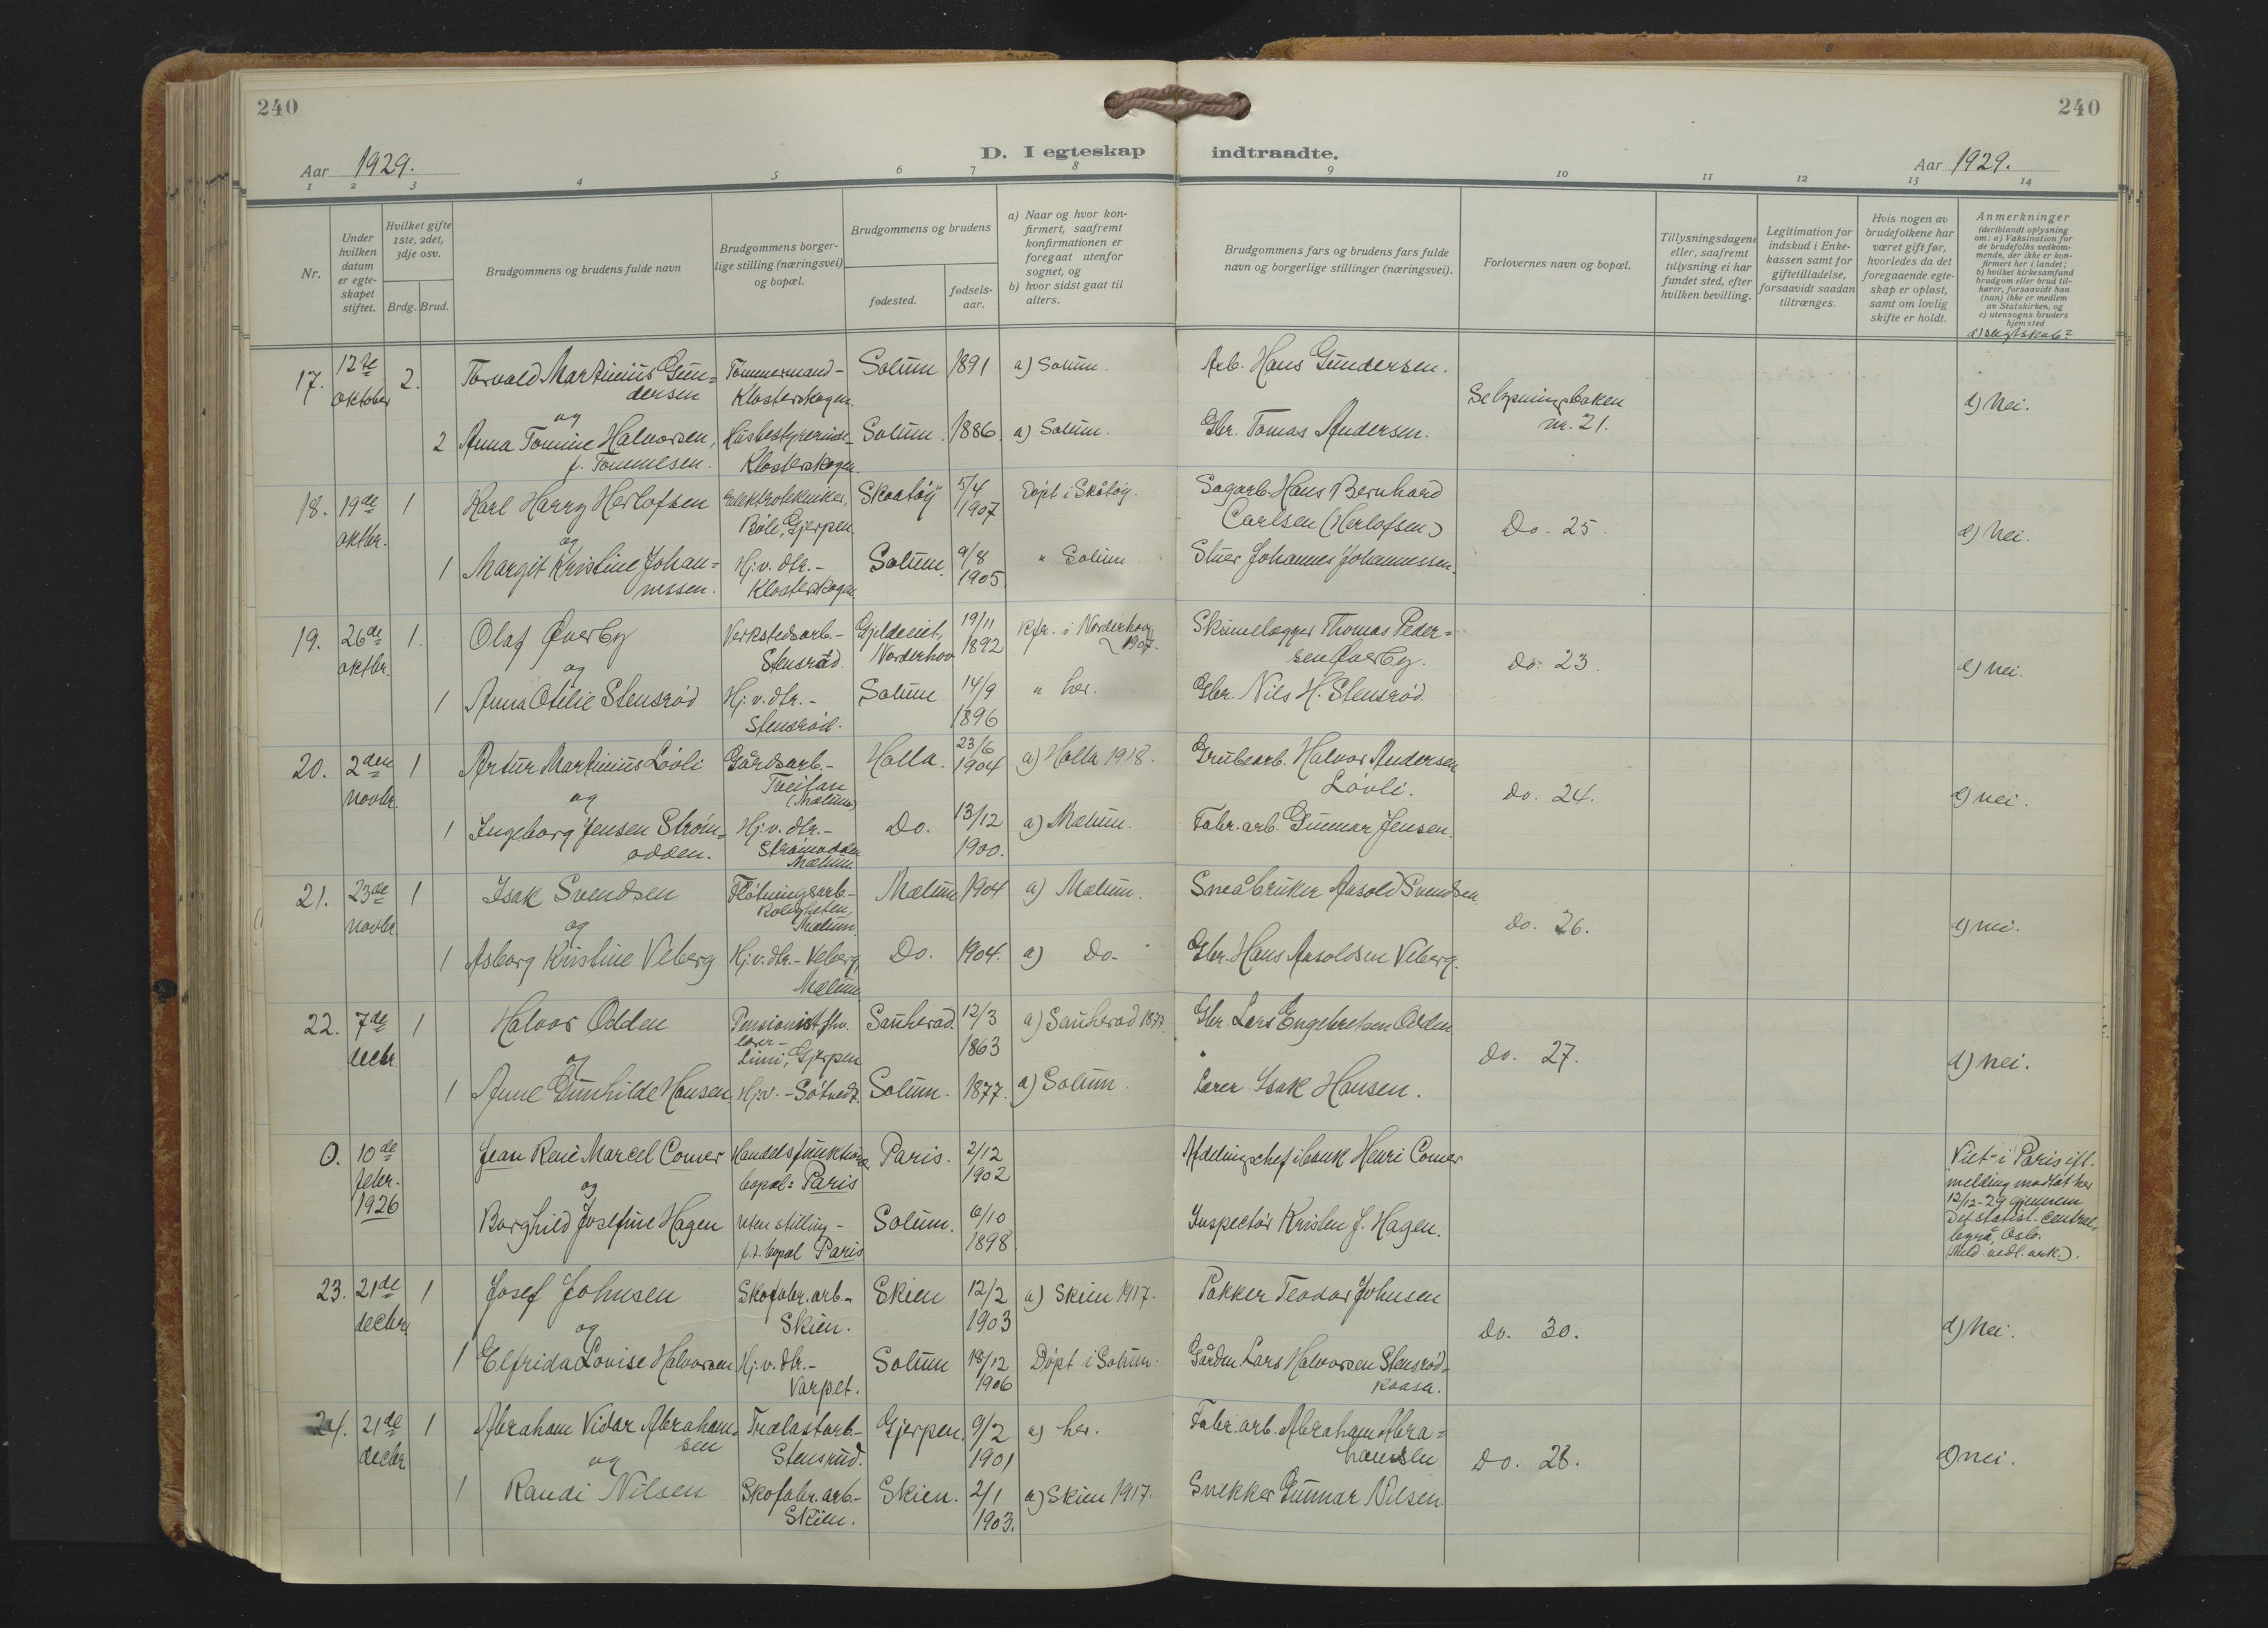 240
240
D. I egteskap indtraadte.
Aar 1929.
Aar 1929.
1 2 3 4 5 6 7 8 9 10 11 12 13 14
Nr.
Under hvilken datum er egte-skapet stiftet.
Hvilket gifte 1ste, 2det, 3dje osv.
Brdg. Brud.
Brudgommens og brudens fulde navn
Brudgommens borger-lige stilling (næringsvei) og bopæl.
Brudgommens og brudens
fødested.
fødsels-aar.
a) Naar og hvor kon-firmert, saafremt konfirmationen er foregaat utenfor sognet, og
b) hvor sidst gaat til alters.
Brudgommens fars og brudens fars fulde navn og borgerlige stillinger (næringsvei).
Forlovernes navn og bopæl.
Tillysningsdagene eller, saafremt tillysning ei har fundet sted, efter hvilken bevilling.
Legitimation for indskud i Enke-kassen samt for giftetilladelse, forsaavidt saadan tiltrænges.
Hvis nogen av brudefolkene har været gift før, hvorledes da det foregaaende egte-skap er opløst, samt om lovlig skifte er holdt.
Anmerkninger
(deriblandt oplysning om: a) Vaksination for de brudefolks vedkom-mende, der ikke er kon-firmert her i landet;
b) hvilket kirkesamfund brudgom eller brud til-hører, forsaavidt han (hun) ikke er medlem av Statskirken, og
c) utensogns bruders hjemsted
d) slegtskab?
17. 12te oktober 2. Torvald Martinius Gun=dersen Tømmermand - Klosterskogen. Solum 1891 a) Solum. Arb. Hans Gundersen. Se lysningsboken nr. 21. d) Nei.
og
2 Anna Tomine Halvorsen, f. Tommesen. Husbestyrerinde - Klosterskogen. Solum. 1886. a) Solum. Gbr. Tomas Andersen.
18. 19de oktbr. 1 Karl Harry Herlofsen Elektrotekniker, Bøle, Gjerpen. Skaatøy 5/4 1907 Døpt i Skåtøy. Sagarb. Hans Bernhard Carlsen (Herlofsen) Do. 25. d) Nei.
og
1 Margit Kristine Johan=nessen. Hj. v. dtr. - Klosterskogen Solum. 9/8 1905 " Solum Stuer Johannes Johannessen.
19. 26de oktbr. 1. Olaf Øverby Verkstedsarb. - Stensrød. Norderhov 19/11 1892 Kfr. i Norderhov 1907. Thomas Peder=sen Øverby. Do. 23. d) nei.
og
1 Anna Otilie Stensrød Hj. v. dtr. - Stensrød. Solum 14/9 1896 " her. Gbr. Nils H. Stensrød.
20. 2den novbr. 1 Artur Martinius Løvli Gårdsarb. - (Mælum) Holla. 23/6 1904 a) Holla 1918. Grubearb. Halvor Andersen Løvli. Do. 24. d) nei.
og
1 Ingeborg Jensen Strøm=odden. Hj. v. dtr. - Strømodden Mælum Do. 13/12 1900. a) Mælum. Fabr. arb. Gunnar Jensen.
21. 23de novbr. 1 Isak Svendsen Fløtningsarb - Mælum. Mælum 1904 a) Mælum. Småbruker Aasold Svendsen Do. 26. d) nei.
og
1 Asborg Kristine Veberg Hj. v. dtr. - Veberg, Mælum Do. 1904. a) Do. Gbr. Hans Aasoldsen Veberg.
22. 7de decbr 1 Halvor Odden Pensionist fhv. lærer - Limi, Gjerpen Sauherad. 12/3 1863 a) Sauherad 1877 Gbr. Lars Engebretsen Odden Do. 27. d) nei.
og
1 Anne Gunhilde Hansen Hj. v. - Søtvedt. Solum. 1877. a) Solum. Lærer Isak Hansen.
0. 10de febr. 1926 Jean René Marcel Comer Handelsfunktionær bopæl: Paris Paris. 2/12 1902 Afdelingschef i bank Henri Comer Viet i Paris ifl. melding modtat her 12/12-29 gjennem Det statist. centralbyrå, Oslo. (Meld. vedl. ark.).
og
Borghild Josefine Hagen uten stilling - f.t. bopæl Paris Solum. 6/10 1898 Inspectør Kristen J. Hagen.
23. 21de decbr 1 Josef Johnsen Skofabr. arb. - Skien. Skien 12/2 1903 a) Skien 1917. Pakker Teodor Johnsen Do. 30. d) Nei.
og
1 Elfrida Lovise Halvorsen Hj. v. dtr. - Varpet. Solum 18/12 1906 Døpt i Solum. Lars Halvorsen Stensrød=kaasa.
24. 21de decbr 1 Abraham Vidar Abraham=sen Trælastarb. - Stensrud. Gjerpen. 9/2 1901 a) her. Fabr. arb. Abraham Abra=hamsen Do. 28. d) nei.
og
1 Randi Nilsen Skofabr. arb. - Skien. Skien. 2/1 1903. a) Skien 1917. Snekker Gunnar Nilsen